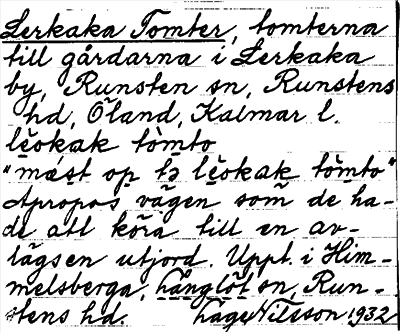 Lerkaka Tomter, tomterna
till gårdarna i Lerkaka
by, Runsten sn, Runstens
hd, Öland, Kalmar l.
lèokak tòmto
"mæst op tə lèokak tòmto"
Apropos vägen som de ha-
de att köra till en av-
lägsen utjord. Uppt. i Him-
melsberga, Långlöt sn, Run-
stens hd. Hage Nilsson 1932